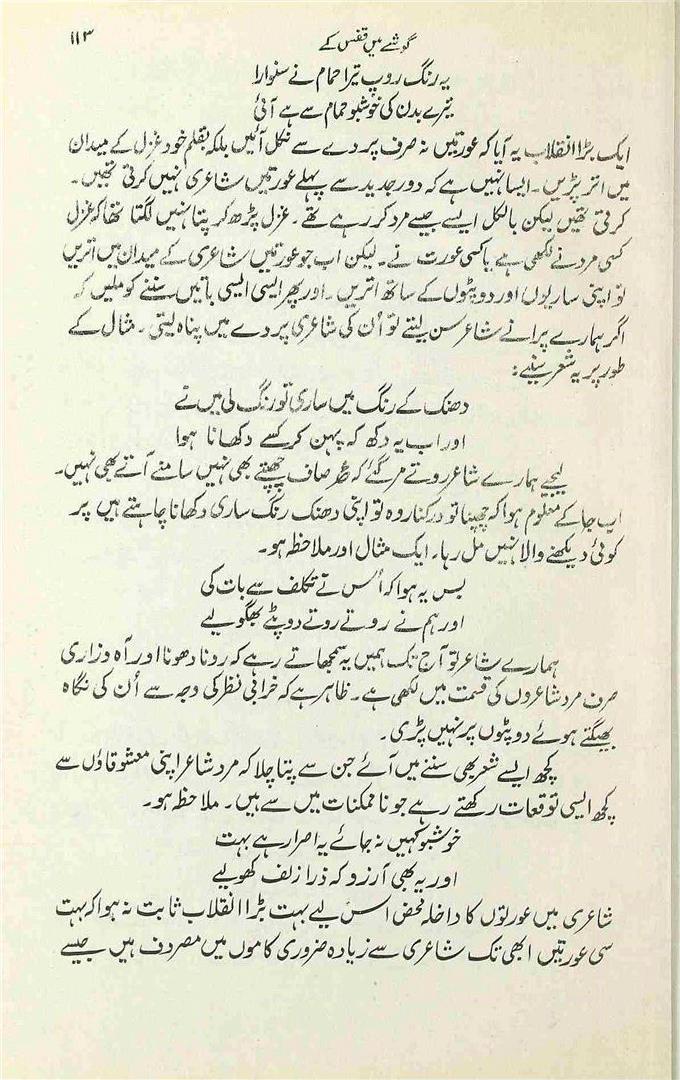 گوشے میں قفس کے ۱۱۳
یہ رنگ روپ تیرا حمام نے سنوارا
تیرے بدن کی خوشبو حمام سے ہے آئی
ایک بڑا انقلاب یہ آیا کہ عورتیں نہ صرف پردے سے نکل آئیں بلکہ بقلم خود غزل کے میدان
میں اتر پڑیں۔ ایسا نہیں ہے کہ دور جدید سے پہلے عورتیں شاعری نہیں کرتی تھیں۔
کرتی تھیں لیکن بالکل ایسے جیسے مرد کر رہے تھے۔ غزل پڑھ کر پتا نہیں لگتا تھا کہ غزل
کسی مرد نے لکھی ہے یا کسی عورت نے۔ لیکن اب جو عورتیں شاعری کے میدان میں اتریں
تو اپنی ساریوں اور دوپٹوں کے ساتھ اتریں۔ اور پھر ایسی ایسی باتیں سننے کو ملیں کہ
اگر ہمارے پرانے شاعر سن لیتے تو اُن کی شاعری پردے میں پناہ لیتی۔ مثال کے
طور پر یہ شعر سنیے:
دھنک کے رنگ میں ساری تو رنگ لی میں نے
اور اب یہ دکھ کہ پہن کر کسے دکھانا ہوا
لیجیے ہمارے شاعر روتے مر گئے کہ ع صاف چھپتے بھی نہیں سامنے آتے بھی نہیں۔
اب جا کے معلوم ہوا کہ چھپنا تو درکنار وہ تو اپنی دھنک رنگ ساری دکھانا چاہتے ہیں پر
کوئی دیکھنے والا نہیں مل رہا۔ ایک مثال اور ملاحظہ ہو۔
بس یہ ہوا کہ اُس نے تکلف سے بات کی
اور ہم نے روتے روتے دوپٹے بھگو لیے
ہمارے شاعر تو آج تک ہمیں یہ سمجھاتے رہے کہ رونا دھونا اور آہ و زاری
صرف مرد شاعروں کی قسمت میں لکھی ہے۔ ظاہر ہے کہ خرابی نظر کی وجہ سے اُن کی نگاہ
بھیگتے ہوئے دوپٹوں پر نہیں پڑی۔
کچھ ایسے شعر بھی سننے میں آئے جن سے پتا چلا کہ مرد شاعر اپنی معشوقاؤں سے
کچھ ایسی توقعات رکھتے رہے جو ناممکنات میں سے ہیں۔ ملاحظہ ہو۔
خوشبو کہیں نہ جائے یہ اصرار ہے بہت
اور یہ بھی آرزو کہ ذرا زلف کھولیے
شاعری میں عورتوں کا داخلہ محض اس لیے بہت بڑا انقلاب ثابت نہ ہوا کہ بہت
سی عورتیں ابھی تک شاعری سے زیادہ ضروری کاموں میں مصروف ہیں جیسے